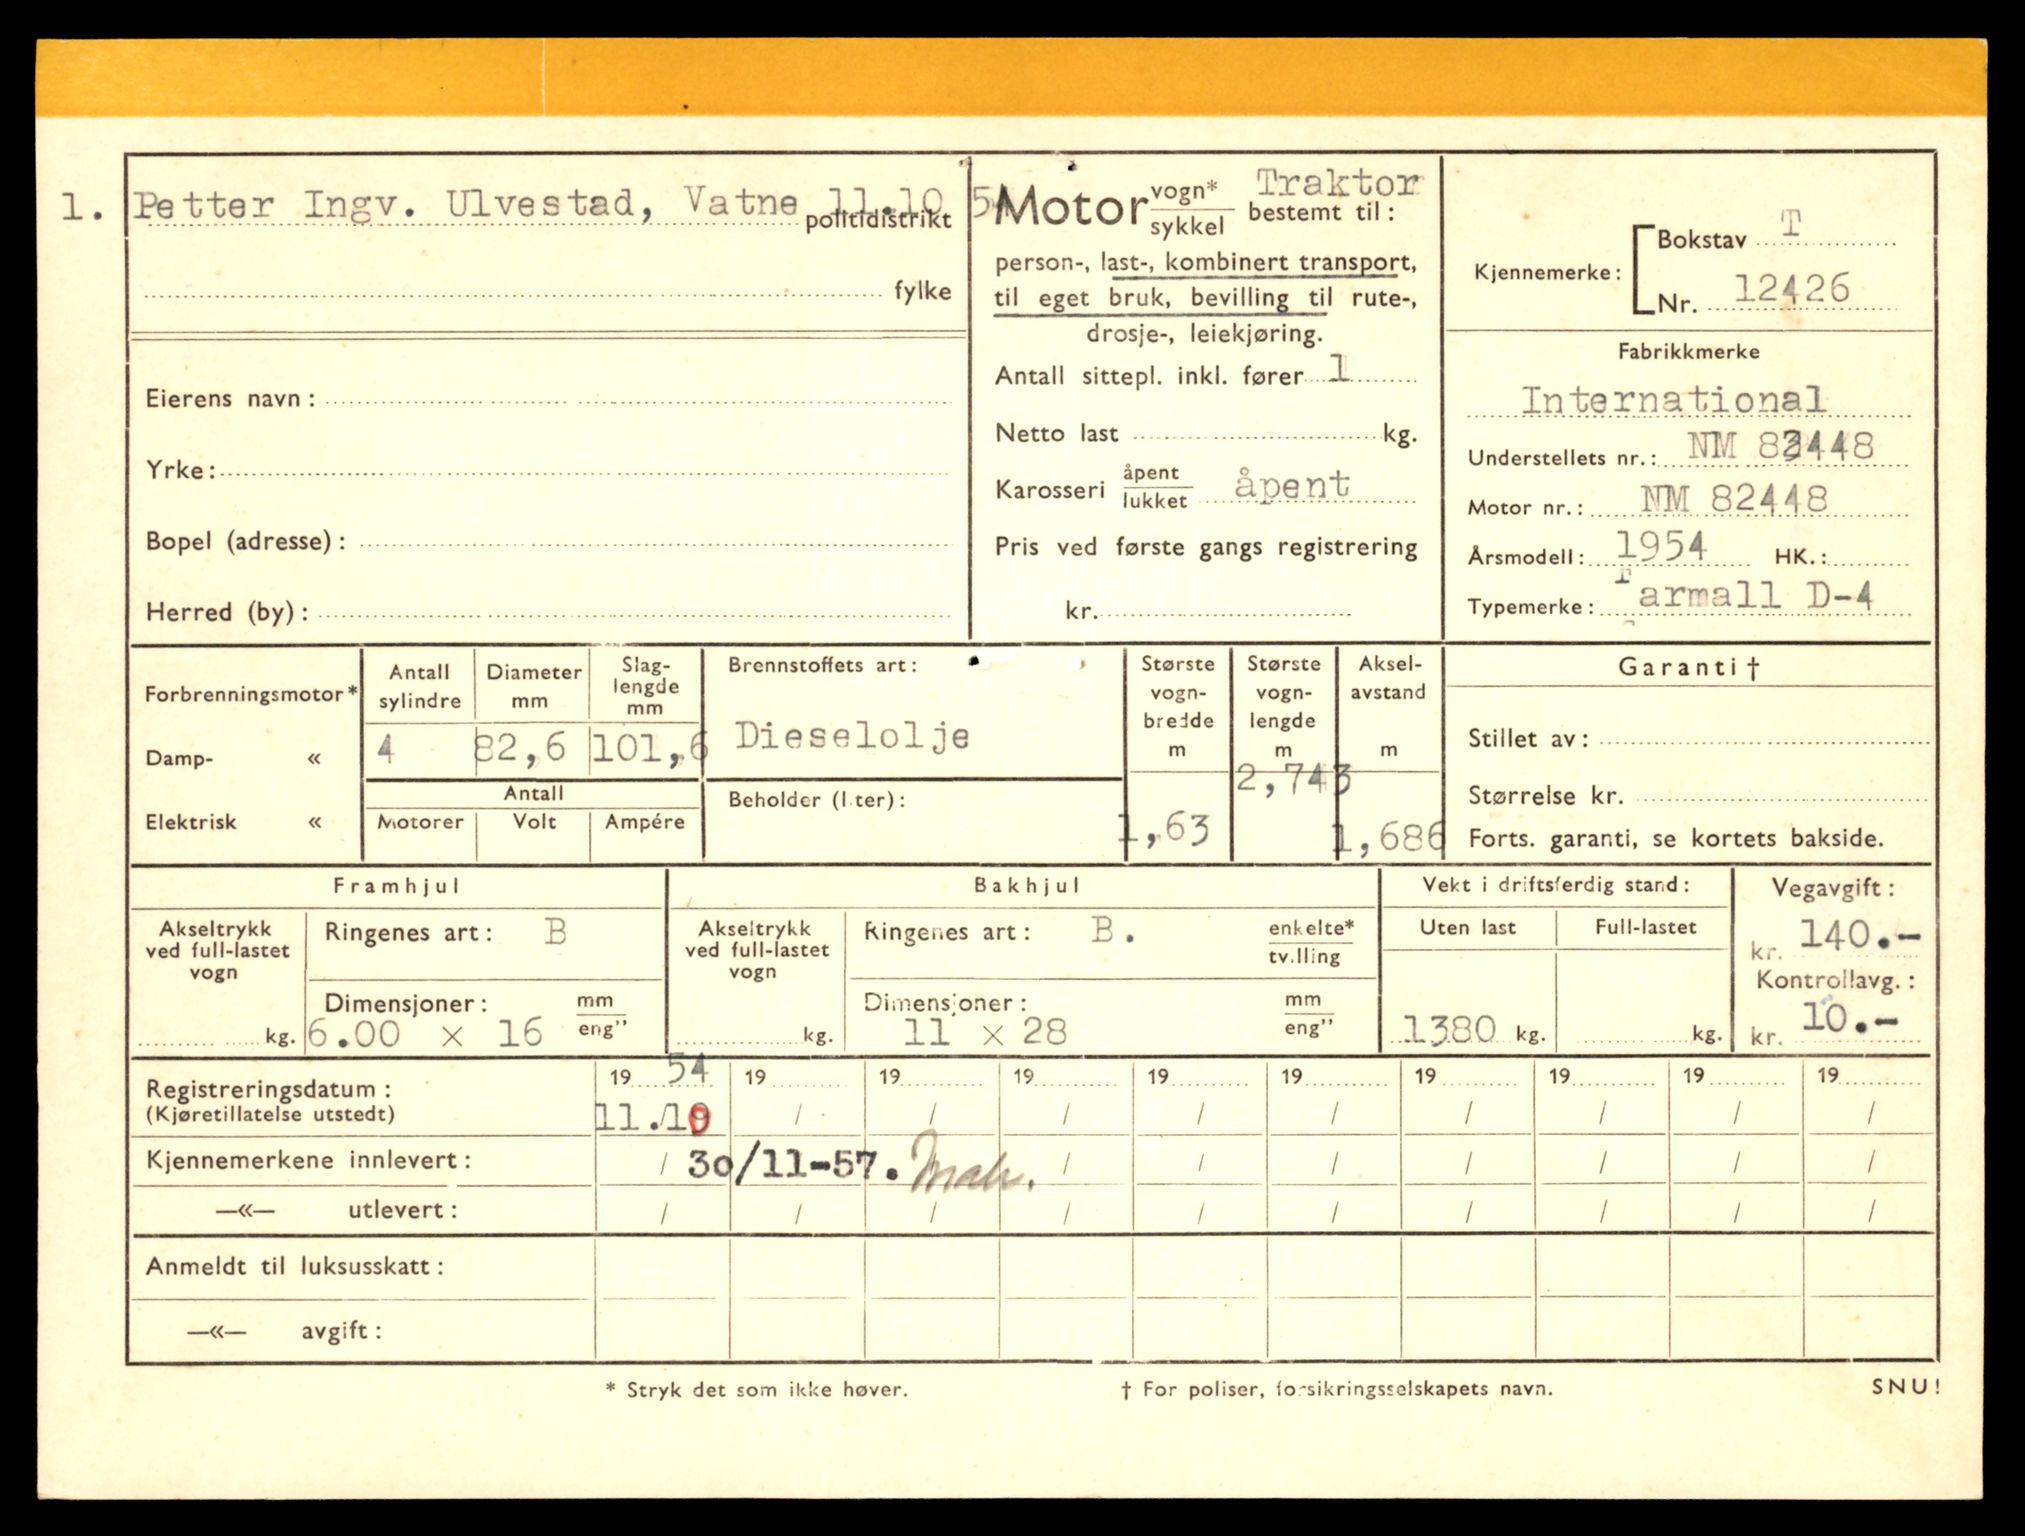 1. Petter Ingv. Ulvestad, Vatne 11.10 54
politidistrikt
fylke
Eierens navn:
Yrke:
Bopel (adresse):
Herred (by):
Motor vogn* / sykkel bestemt til: Traktor
person-, last-, kombinert transport,
til eget bruk, bevilling til rute-,
drosje-, leiekjøring.
Antall sittepl. inkl. fører 1
Netto last kg.
Karosseri åpent / lukket åpent
Pris ved første gangs registrering
kr.
Kjennemerke: Bokstav T
Nr. 12426
Fabrikkmerke
International
Understellets nr.: NM 82448
Motor nr.: NM 82448
Årsmodell: 1954 HK.:
Typemerke: Farmall D-4
Forbrenningsmotor*
Damp- «
Elektrisk «
Antall sylindre
4
Diameter mm
82,6
Slag-lengde mm
101,6
Antall
Motorer Volt Ampére
Brennstoffets art:
Dieselolje
Beholder (liter):
Største vogn-bredde m
1,63
Største vogn-lengde m
2,743
Aksel-avstand m
1,686
Garanti †
Stillet av:
Størrelse kr.
Forts. garanti, se kortets bakside.
Framhjul
Akseltrykk ved full-lastet vogn
kg.
Ringenes art: B
Dimensjoner: mm / eng"
6.00 x 16
Bakhjul
Akseltrykk ved full-lastet vogn
kg.
Ringenes art: B. enkelte* / tvilling
Dimensjoner: mm / eng"
11 x 28
Vekt i driftsferdig stand:
Uten last Full-lastet
1380 kg. kg.
Vegavgift:
kr. 140.-
Kontrollavg.:
kr. 10.-
Registreringsdatum: 19 54 19 19 19 19 19 19 19 19 19
(Kjøretillatelse utstedt) 11./10 / / / / / / / / /
Kjennemerkene innlevert: / 30/11-57. / / / / / / /
—«— utlevert: / / / / / / / / / /
Anmeldt til luksusskatt:
—«— avgift:
* Stryk det som ikke høver. † For poliser, forsikringsselskapets navn. SNU!